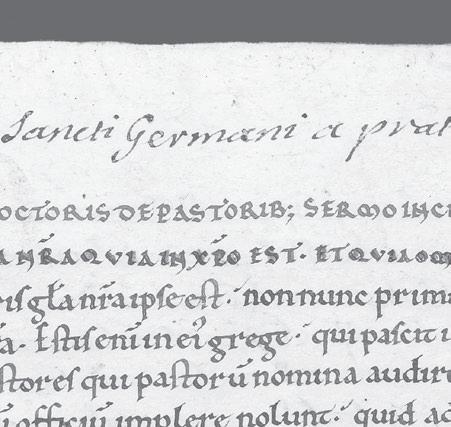 Sancti Germani a prat
OCTORIS DE PASTORIB; SERMO INCI
A NR̄A QVIA IN XP̄O EST. ET QVIA OM
ris gl̄a nr̄a ipse est. non nunc prima
r̄a. Estis enī in ei' grege. qui pascit i
stores qui pastorū nomina audire
ū officiū implere nolunt. quid ad